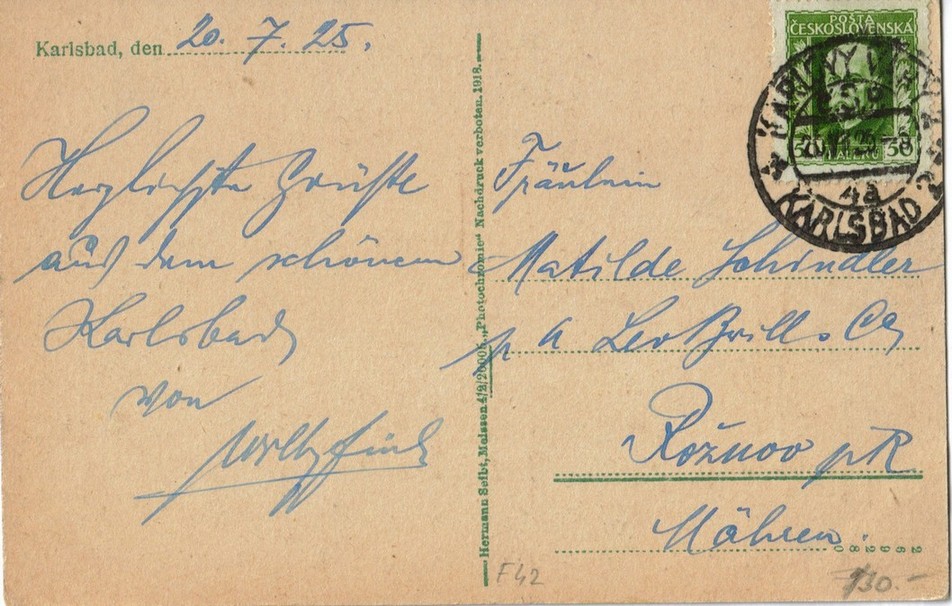 Karlsbad, den 20. 7. 25.
Herzlichste Grüsse
aus dem schönen
Karlsbad
von
Willy Fink
Hermann Seibt, Meissen 412/20006. „Photochromie" Nachdruck verboten. 1918.
POŠTA
ČESKOSLOVENSKA
50 HALÉŘŮ 50
KARLOVY VARY 2
20.VII.25-8
4a
KARLSBAD 2
Fräulein
Matilde Schindler
p A Leo Brill & Co
Rožnov pR
Mähren.
262980
F42
130.-